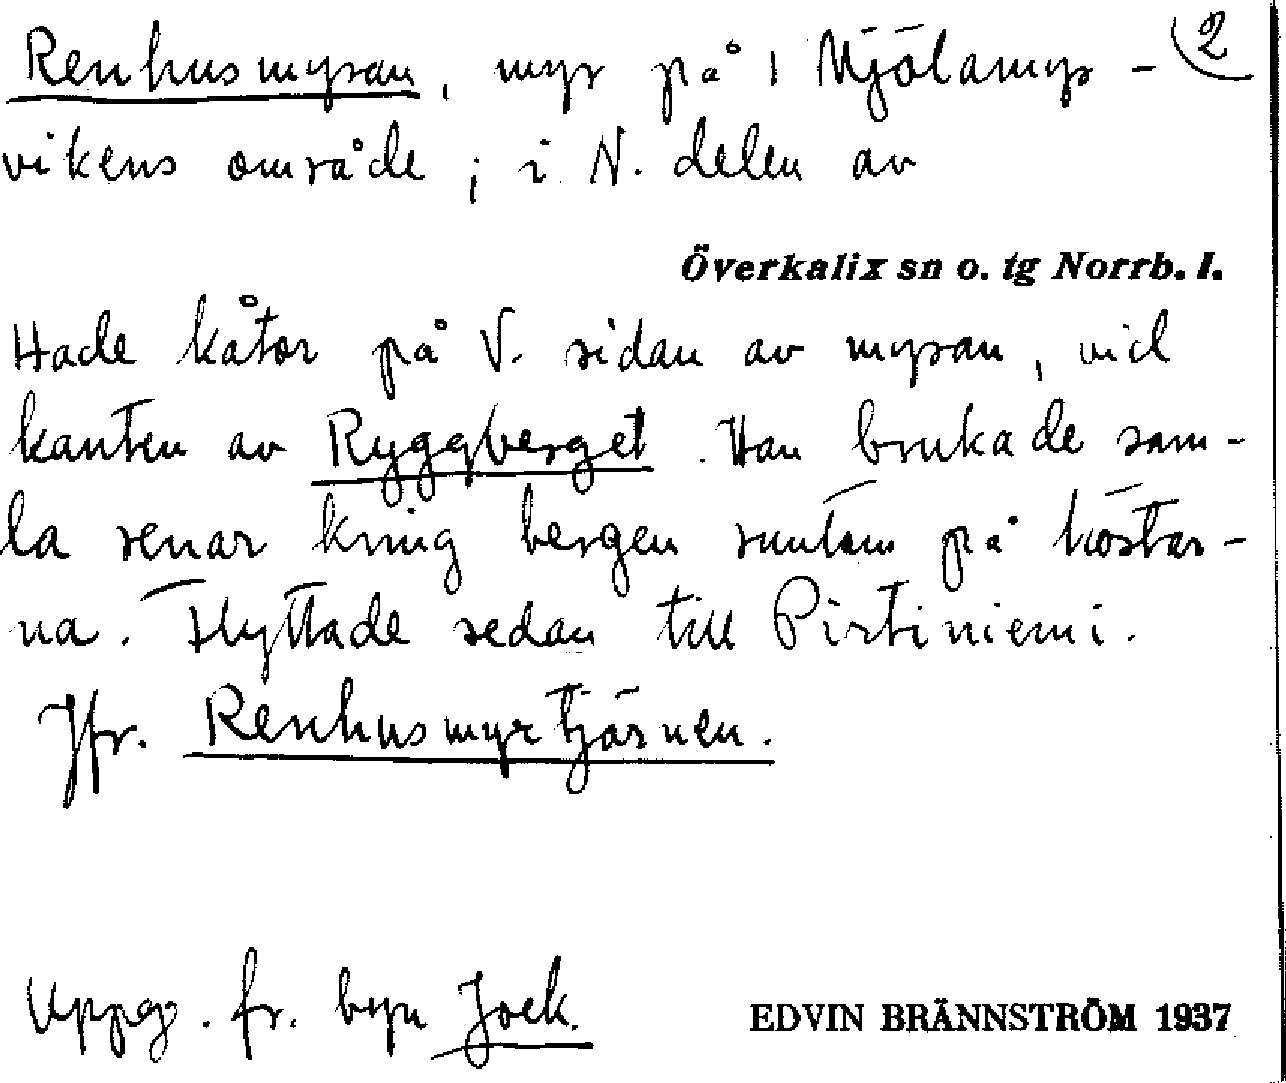 Renhusmyran, myr på Mjölamyr- 2
vikens område; i N. delen av
Överkalix sn o. tg Norrb. l.
Hade kåtor på V. sidan av myran, vid
kanten av Ryggberget. Han brukade sam-
la renar kring bergen runtom på höstar-
na. Flyttade sedan till Pirtiniemi.
Jfr. Renhusmyrtjärnen.
Uppg. fr. byn Jock.
EDVIN BRÄNNSTRÖM 1937